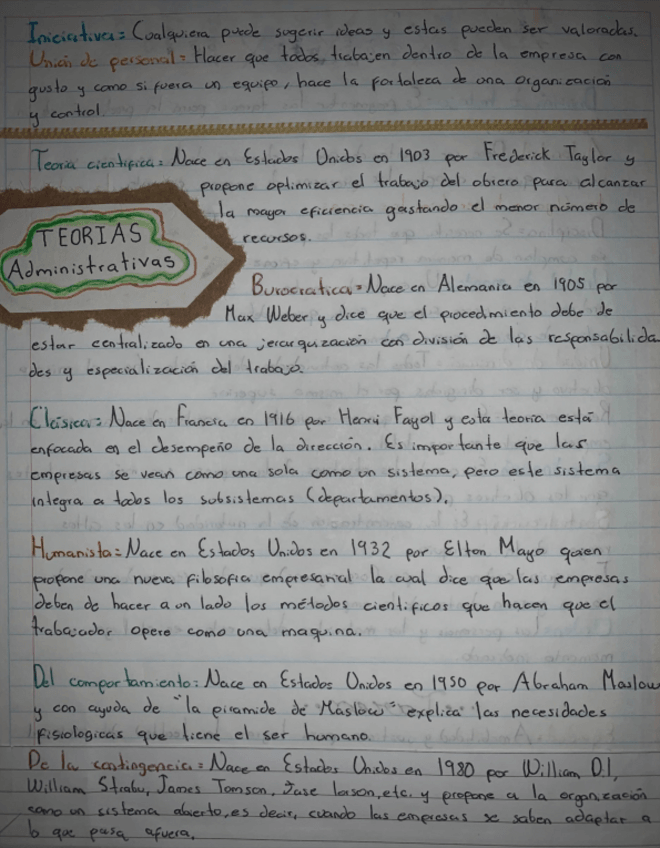 Iniciativa: Cualquiera puede sugerir ideas y estas pueden ser valoradas.
Unión de personal: Hacer que todos trabajen dentro de la empresa con
gusto y como si fuera un equipo, hace la fortaleza de una organización
y control.
Teoria cientifica: Nace en Estados Unidos en 1903 por Frederick Taylor y
propone optimizar el trabajo del obrero para alcanzar
la mayor eficiencia gastando el menor número de
recursos.
TEORIAS
Administrativas
Burocratica: Nace en Alemania en 1905 por
Max Weber y dice que el procedmiento debe de
estar centralizado en una jerarquización con división de las responsabilida
des y especialización del trabajo.
Clásica: Nace en Francia en 1916 por Henri Fayol y esta teoria está
enfocada en el desempeño de la dirección. Es importante que las
empresas se vean como una sola como un sistema, pero este sistema
integra a todos los subsistemas (departamentos).
Humanista: Nace en Estados Unidos en 1932 por Elton Mayo quien
propone una nueva filosofia empresarial la cual dice que las empresas
deben de hacer a un lado los métodos cientificos que hacen que el
trabajador opere como una maquina.
Del comportamiento: Nace en Estados Unidos en 1950 por Abraham Maslow
y con ayuda de "la piramide de Maslow" explica las necesidades
fisiologicas que tiene el ser humano.
De la contingencia: Nace en Estados Unidos en 1980 por William D.I,
William Strabu, James Tomson, lorson, etc. y propone a la organización
como un sistema abierto, es decir, cuando las empresas se saben adaptar a
lo que pasa afuera.